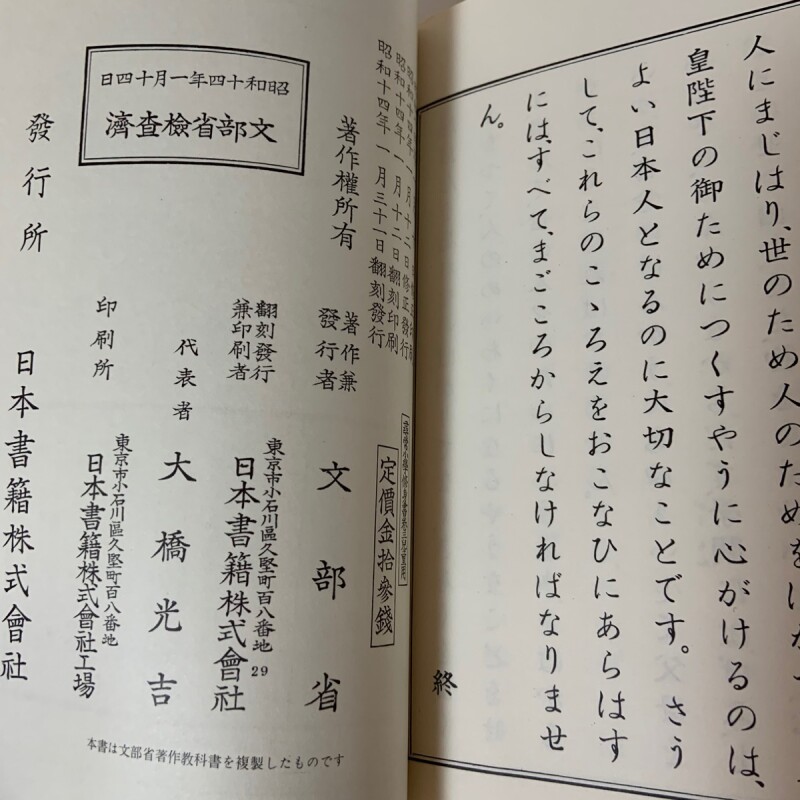 人にまじはり、世のため人のためを
皇陛下の御ためにつくすやうに心がけるのは、
よい日本人となるのに大切なことです。さう
して、これらのこゝろえをおこなひにあらはす
には、すべて、まごころからしなければなりませ
ん。
終
昭和十四年一月十二日修正發行
昭和十四年一月十二日翻刻印刷
昭和十四年一月三十一日翻刻發行
定價金拾參錢
著作權所有
著作兼發行者
文部省
翻刻發行兼印刷者
東京市小石川區久堅町百八番地
日本書籍株式會社
29
代表者
大橋光吉
印刷所
東京市小石川區久堅町百八番地
日本書籍株式會社工場
發行所
日本書籍株式會社
昭和十四年一月十四日
文部省檢查濟
本書は文部省著作教科書を複製したものです